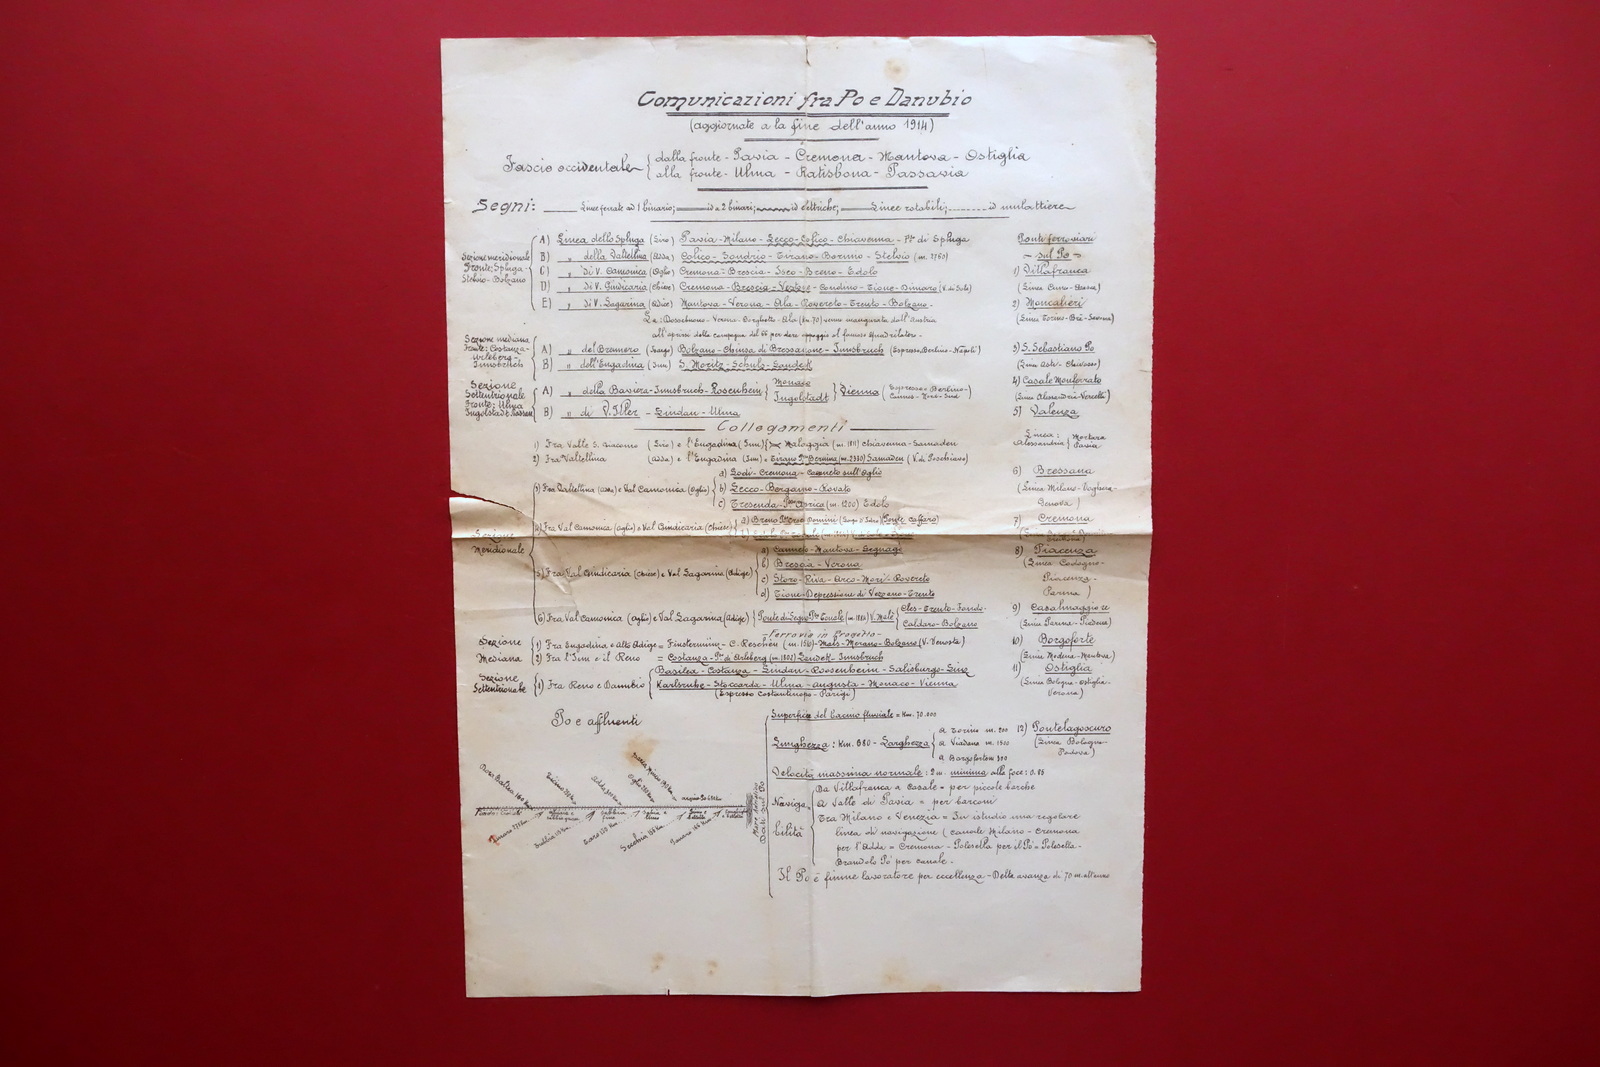 Comunicazioni fra Po e Danubio
(aggiornate a la fine dell'anno 1914)
Fascio occidentale { dalla fronte - Pavia - Cremona - Mantova - Ostiglia
alla fronte - Ulma - Ratisbona - Passavia
Segni: Linee ferrate ad 1 binario; id a 2 binari; id elettriche; Linee rotabili; id mulattiere
Sezione meridionale
Fronte: Spluga -
Stelvio - Bolzano
A) Linea dello Spluga (Liro) Pavia - Milano - Lecco - Colico - Chiavenna - Pso di Spluga
B) " della Valtellina (Adda) Colico - Sondrio - Tirano - Bormio - Stelvio (m. 2760)
C) " di V. Camonica (Oglio) Cremona - Brescia - Iseo - Breno - Edolo
D) " di V. Giudicaria (Chiese) Cremona - Brescia - Vestone - Condino - Tione - Dimaro (V. di Sole)
E) " di V. Lagarina (Adige) Mantova - Verona - Ala - Rovereto - Trento - Bolzano
La: Dossobuono - Verona - Borghetto - Ala (Km. 70) venne inaugurata dall'Austria
all'aprirsi della campagna del 66 per dare appoggio al famoso Quadrilatero.
Sezione mediana
Fronte: Costanza -
Arlberg -
Innsbruch
A) " del Brennero (Isargo) Bolzano - Chiusa di Bressanone - Innsbruch (Espresso Berlino - Napoli)
B) " dell'Engadina (Inn) S. Moritz - Schuls - Landek
Sezione
Settentrionale
Fronte: Ulma
Ingolstadt - Passau
A) " della Baviera - Innsbruch - Rosenheim { Monaco Ingolstadt } Vienna (Espresso - Berlino -
B) " di V. Iller - Lindau - Ulma
Collegamenti
1) Fra Valle S. Giacomo (Liro) e l'Engadina (Inn) { Maloggia (m. 1811) Chiavenna - Samaden
2) Fra Valtellina (Adda) e l'Engadina (Inn) = Tirano Pso Bernina (m. 2330) Samaden (V. di Poschiavo)
Sezione
Meridionale
3) Fra Valtellina (Adda) e Val Camonica (Oglio)
a) Lodi - Cremona - Canneto sull'Oglio
b) Lecco - Bergamo - Rovato
c) Tresenda - Passo Aprica (m. 1200) Edolo
4) Fra Val Camonica (Oglio) e Val Giudicaria (Chiese)
5) Fra Val Giudicaria (Chiese) e Val Lagarina (Adige)
a) Canneto - Mantova - Legnago
b) Brescia - Verona
c) Storo - Riva - Arco - Mori - Rovereto
d) Tione - Depressione di Vezzano - Trento
6) Fra Val Camonica (Oglio) e Val Lagarina (Adige) { Ponte di Legno Pso Tonale (m. 1884) V. Malè { Cles - Trento - Fondo -
Caldaro - Bolzano
- Ferrovia in Progetto -
Sezione
Mediana
1) Fra Engadina e Alto Adige = Finstermünz - C. Reschen (m. 1510) - Mals - Merano - Bolzano (V. Venosta)
2) Fra l'Inn e il Reno = Costanza - Pso di Arlberg (m. 1802) Landek - Innsbruch
Sezione
Settentrionale
1) Fra Reno e Danubio
Basilea - Costanza - Lindau - Rosenheim - Salisburgo - Linz
Karlsruhe - Stoccarda - Ulma - Augusta - Monaco - Vienna
(Espresso Costantinopo - Parigi)
Ponti ferroviari
sul Po
1) Villafranca
2) Moncalieri
(Linea Torino - Brà - Savona)
3) S. Sebastiano Po
(Linea Asti - Chivasso)
4) Casale Monferrato
(Linea Alessandria Vercelli)
5) Valenza
Linea: Alessandria { Mortara Pavia
6) Bressana
(Linea Milano - Voghera -
Genova)
7) Cremona
8) Piacenza
(Linea Codogno -
Piacenza -
Parma)
9) Casalmaggiore
(Linea Parma - Piadena)
10) Borgoforte
(Linea Modena - Mantova)
11) Ostiglia
(Linea Bologna - Ostiglia -
Verona)
12) Pontelagoscuro
(Linea Bologna -
Padova)
Po e affluenti
Dora Baltea 160 Km
Ticino
Adda
Oglio
Mincio
Mare Adriatico
Dati sul Po
Superficie del bacino fluviale = Km. 70.000
Lunghezza: Km. 680 - Larghezza
a Torino m. 200
a Viadana m. 1300
a Borgoforte m 300
Velocità massima normale: 2 m. minima alle foce: 0.85
Naviga
bilità
Da Villafranca a Casale = per piccole barche
A Valle di Pavia = per barconi
Tra Milano e Venezia = In istudio una regolare
linea di navigazione (canale Milano - Cremona
per l'Adda = Cremona - Polesella per il Po = Polesella -
Brondolo Po' per canale.
Il Po è fiume lavoratore per eccellenza - Delta avanza di 70 m. all'anno